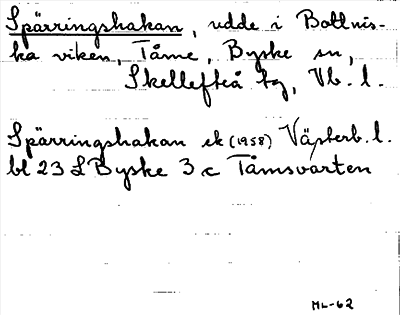 Spärringshakan, udde i Bottnis-
ka viken, Tåme, Byske sn,
Skellefteå tg, Vb. l.
Spärringshakan ek (1958) Västerb. l.
bl 23 L Byske 3 c Tåmsvarten
ML-62